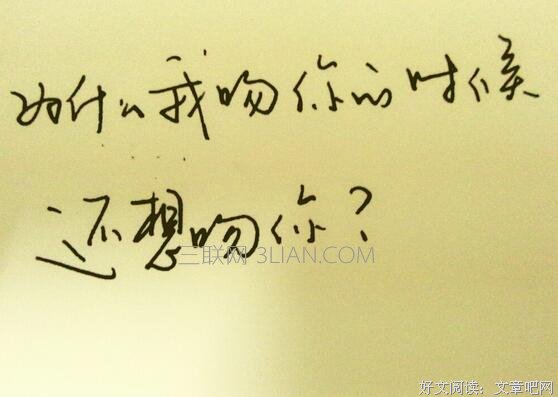 为什么我吻你的时候
还想吻你？
三联网 3LIAN.COM
好文阅读：文章吧网